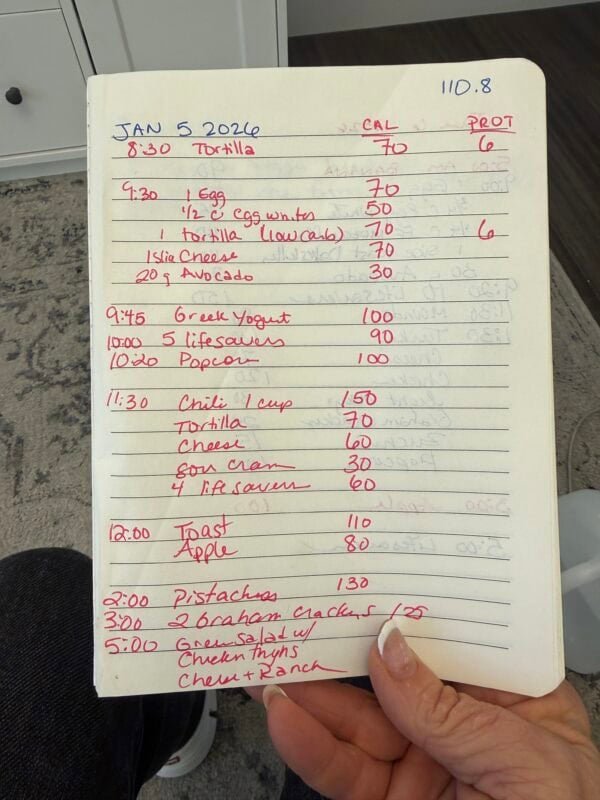 110.8
JAN 5 2026 CAL PROT
8:30 Tortilla 70 6
9:30 1 Egg 70
1/2 c egg whites 50
1 tortilla (low carb) 70 6
1 slice Cheese 70
20g Avocado 30
9:45 Greek Yogurt 100
10:00 5 lifesavers 90
10:20 Popcorn 100
11:30 Chili 1 cup 150
Tortilla 70
Cheese 60
Sour cream 30
4 lifesavers 60
12:00 Toast 110
Apple 80
2:00 Pistachios 130
3:00 2 Graham crackers 125
5:00 Green salad w/
Chicken thighs
Cheese + Ranch